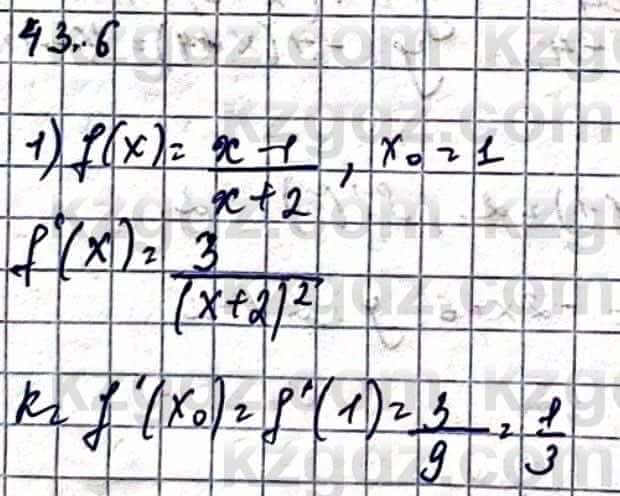 43.6
1) f(x) = x-1 / x+2, x₀ = 1
f'(x) = 3 / (x+2)²
k = f'(x₀) = f'(1) = 3/9 = 1/3
kzgdz.com